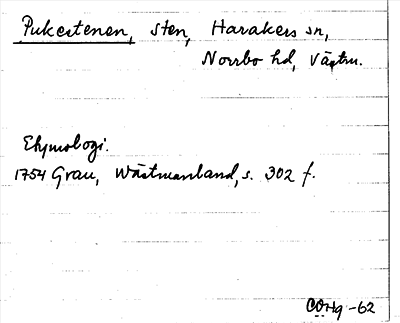 Pukestenen, sten, Harakers sn,
Norrbo hd, Västm.
Etymologi.
1754 Grau, Wästmanland, s. 302 f.
COHg -62